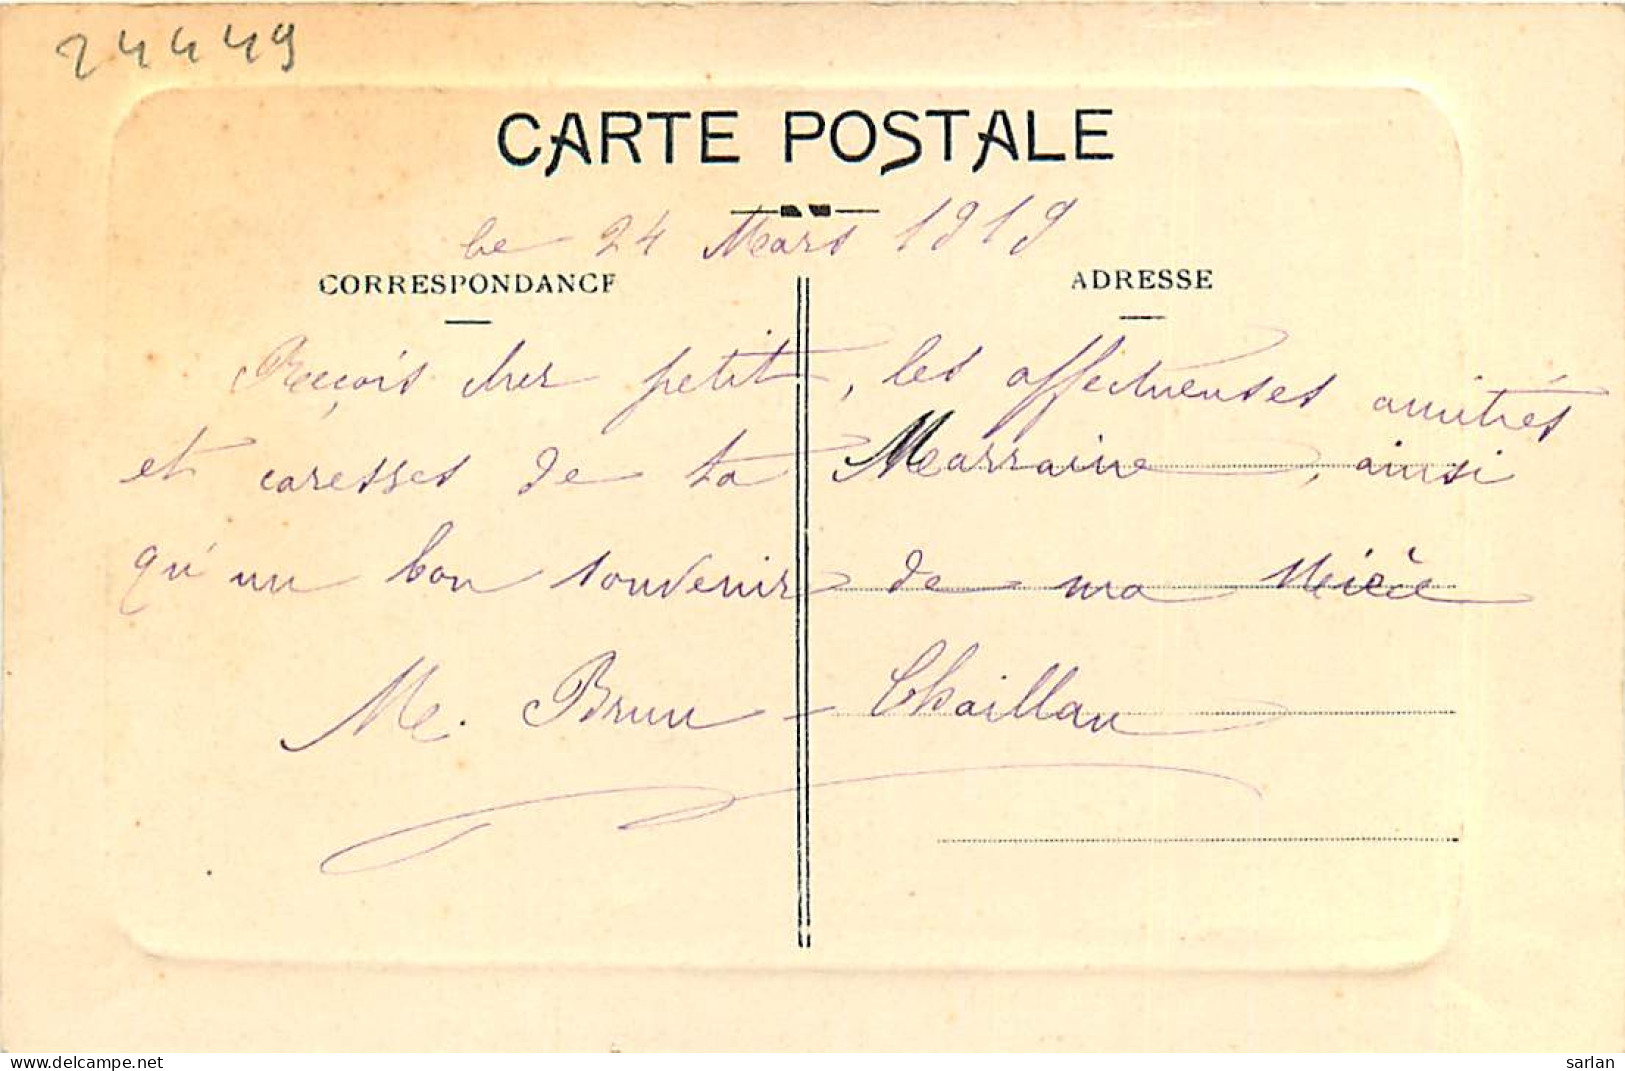 24449
CARTE POSTALE
Le 24 Mars 1919
CORRESPONDANCE
ADRESSE
Reçois cher petit, les affectueuses amitiés
et caresses de ta Marraine, ainsi
qu'un bon souvenir de ma Nièce
M. Brun - Chaillan
www.delcampe.net
sarlan